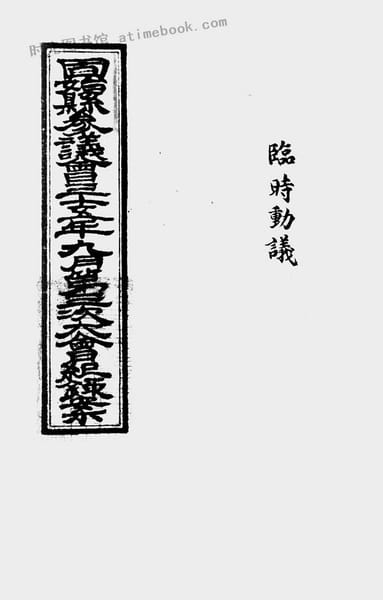 时光图书馆 - atimebook.com
臨時動議
縣參議會三十五年九月第次大會紀錄案